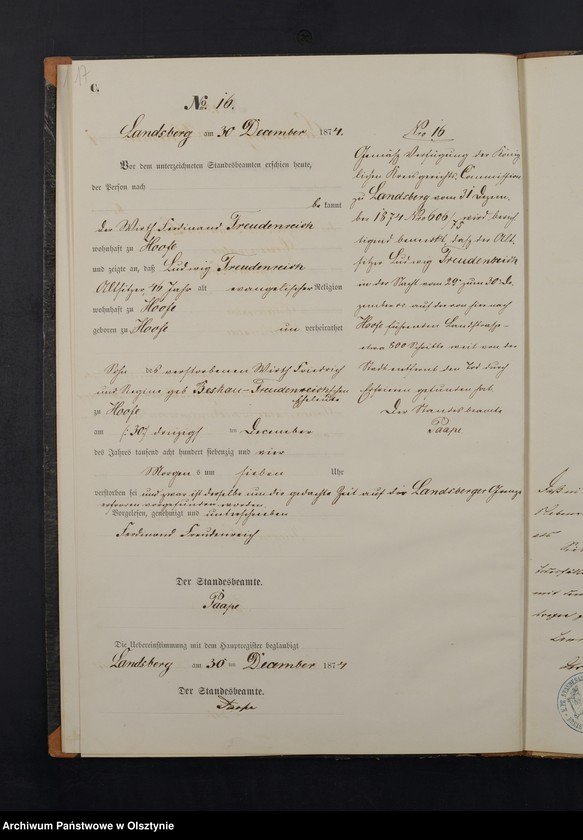 17
C.
No. 16.
Landsberg am 30 December 1874.
Vor dem unterzeichneten Standesbeamten erschien heute,
der Person nach
bekannt
der Wirth Ferdinand Freudenreich
wohnhaft zu Hoofe
und zeigte an, daß Ludwig Freudenreich
Altsitzer, 46 Jahr alt evangelischer Religion
wohnhaft zu Hoofe
geboren zu Hoofe
un verheirathet
Sohn des verstorbenen Wirth Friedrich
und Regine geb Beshau-Freudenreichschen
Eheleute
zu Hoofe
am (:30:) dreizigst December
des Jahres tausend acht hundert siebenzig und vier
Morgens um sieben Uhr
verstorben sei und zwar ist derselbe um die gedachte Zeit auf die Landsberger Grenze
erfroren vorgefunden worden
Vorgelesen, genehmigt und unterschrieben
Ferdinand Freudenreich
Der Standesbeamte.
Paape
Die Uebereinstimmung mit dem Hauptregister beglaubigt
Landsberg am 30 ten December 1874
Der Standesbeamte.
Paape
Nro 16
Gemäß Verfügung der König
lichen Kreisgerichts Commission
zu Landsberg vom 31 Dezem-
ber 1874 Nro 606/75 wird berich
tigend bemerkt, daß der Alt,
sitzer Ludwig Freudenreich
in der Nacht vom 29t zum 30t De,
zember auf der von hier nach
Hoofe führenden Landstraße
etwa 500 Schritte weit von der
Stadt entfernt den Tod durch
Erfrieren gefunden hat.
Der Standesbeamte
Paape
Archiwum Państwowe w Olsztynie